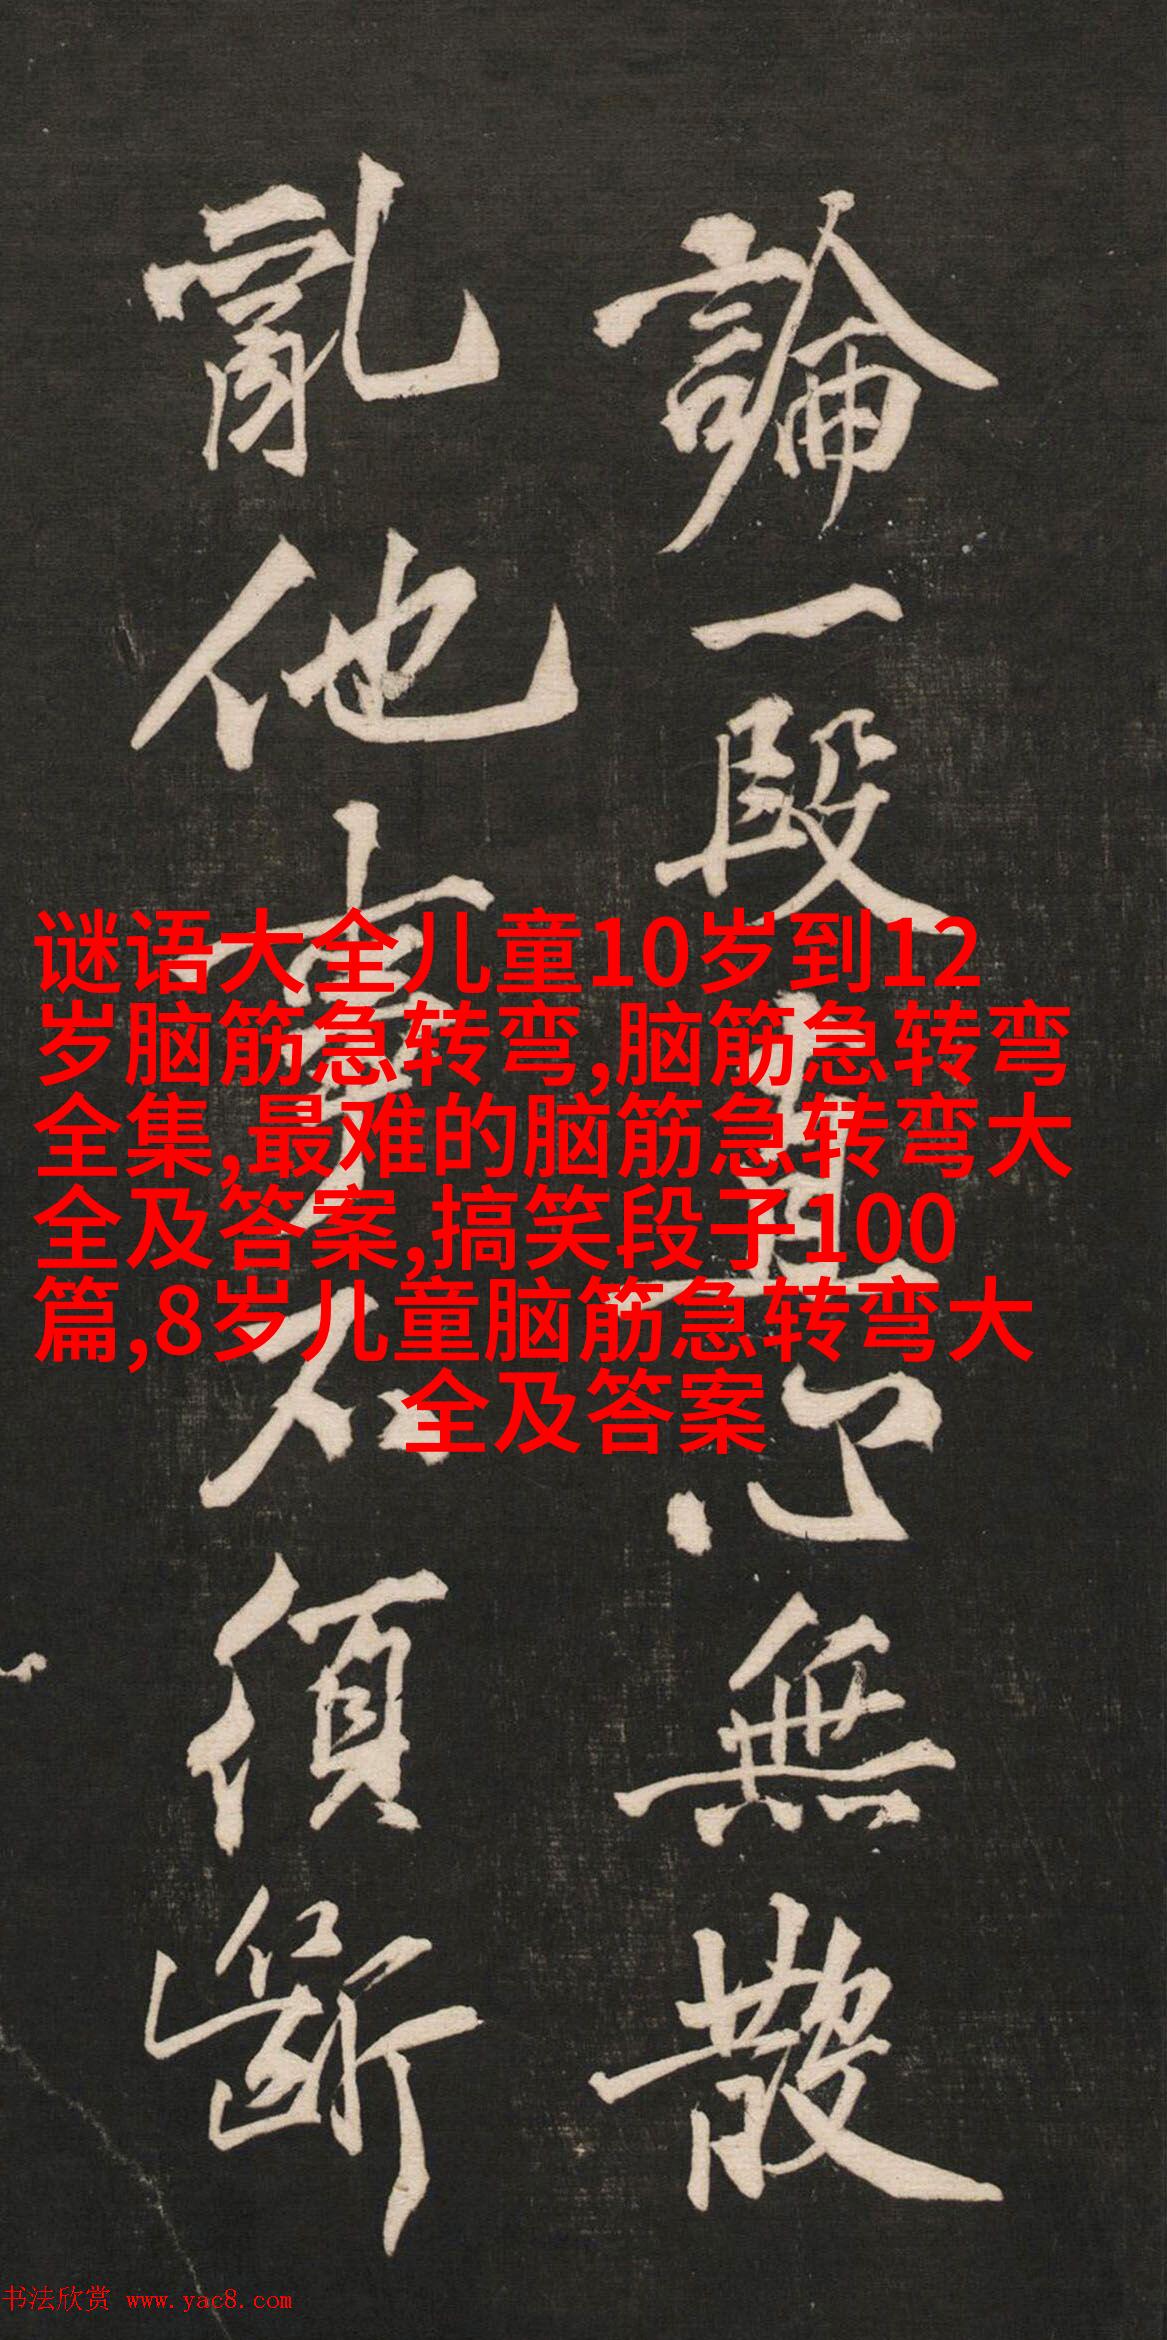 論一段真心無散
亂他事不須斷
谜语大全儿童10岁到12
岁脑筋急转弯,脑筋急转弯
全集,最难的脑筋急转弯大
全及答案,搞笑段子100
篇,8岁儿童脑筋急转弯大
全及答案
书法欣赏 www.yac8.com